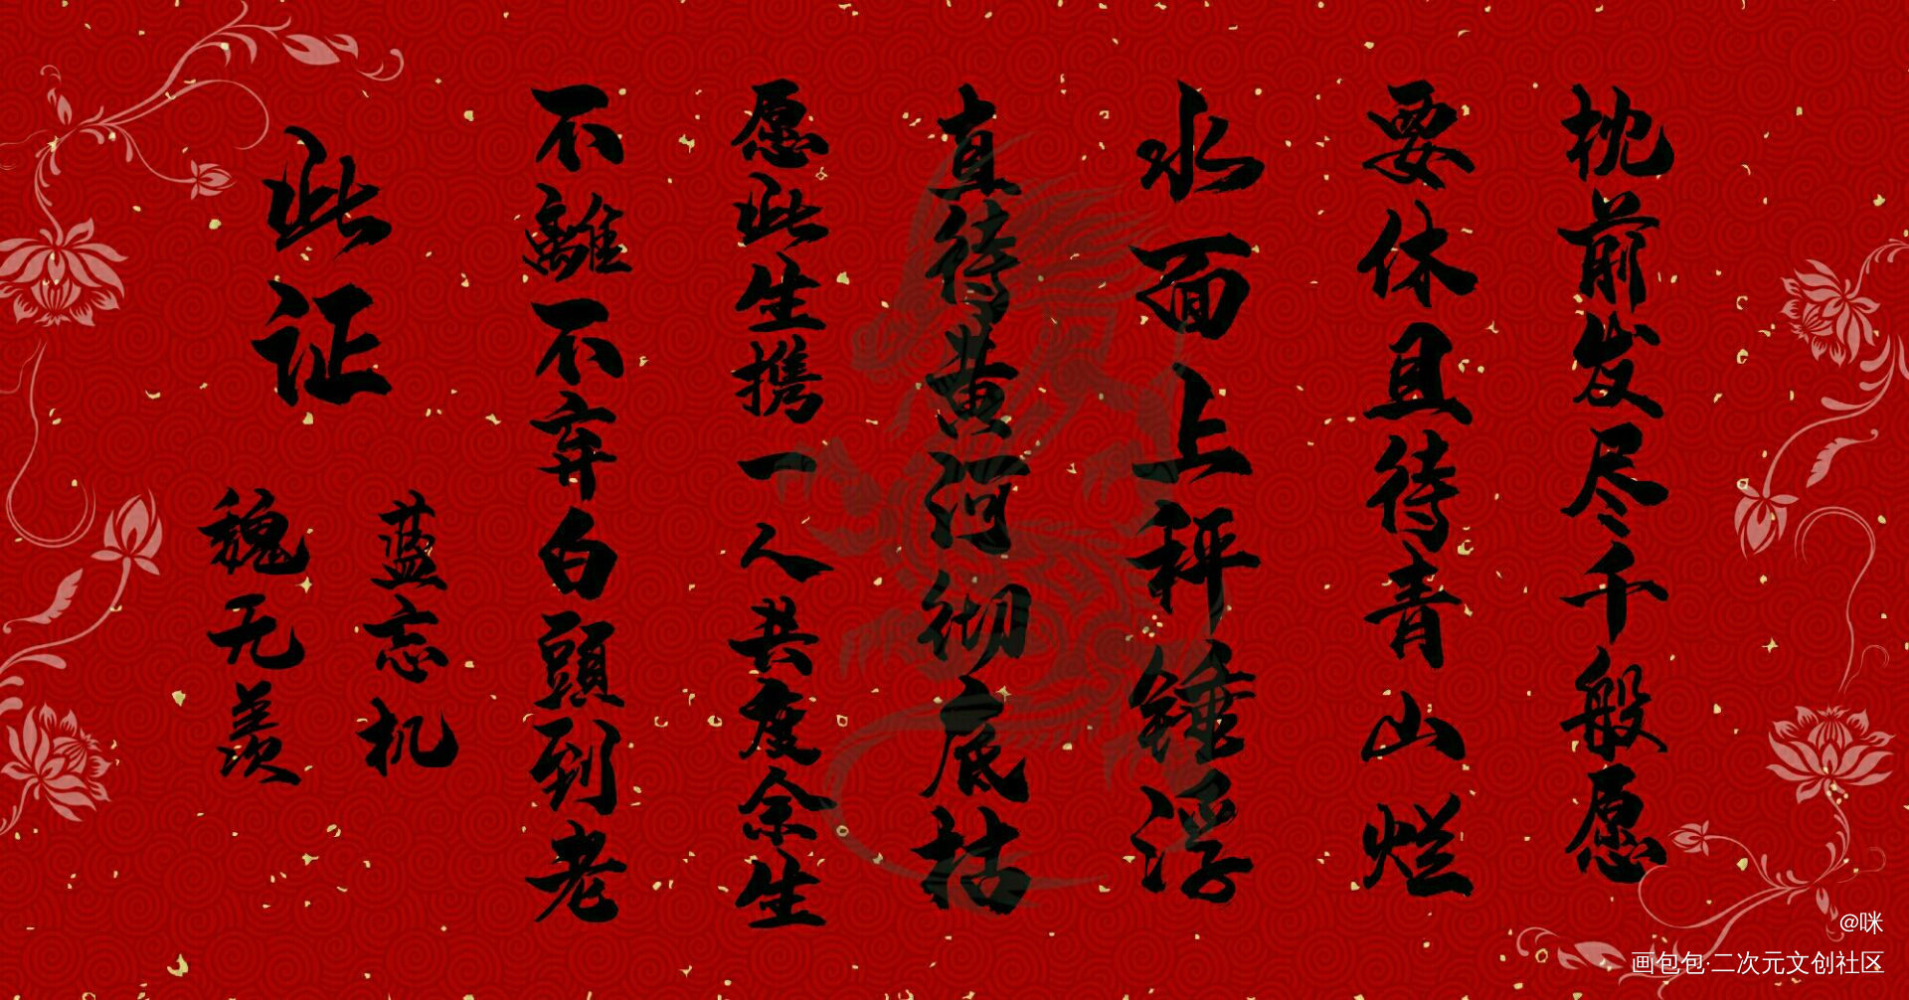 枕前发尽千般愿
要休且待青山烂
水面上秤锤浮
直待黄河彻底枯
愿此生携一人共度余生
不離不弃白頭到老
此证
蓝忘机
魏无羡
@咪
画包包·二次元文创社区